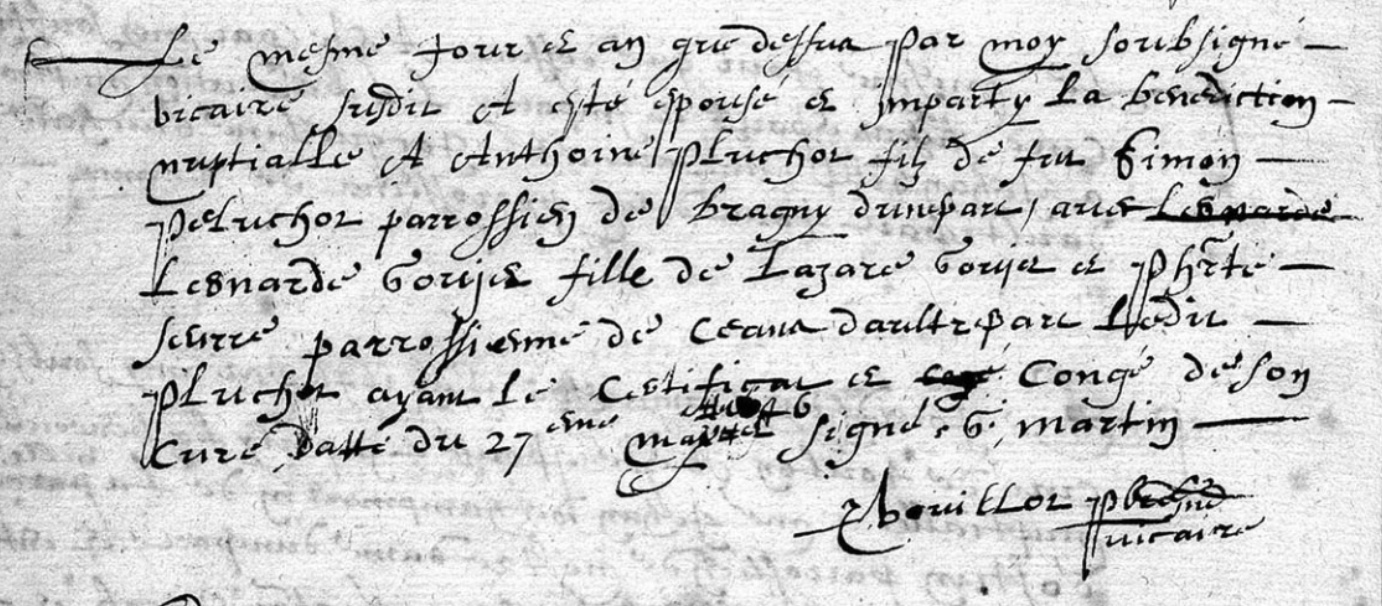 Le mesme Jour et an que dessus par moy soubsigné
vicaire susdit A esté espousé et imparty La benediction
nuptialle A Anthoine Pluchot filz de fut Simon
peluchot parrossien de Bragny d'unepart, avec Lesnarde
Lesnarde Gorije fille de Lazare Gorije et phrte
seurre parrossienne de Ceaux d'aultrepart Ledit
Pluchot ayant le Certificat et Congé de son
Curé datté du 27 eme signé G. martin
bouillot pbre
vicaire